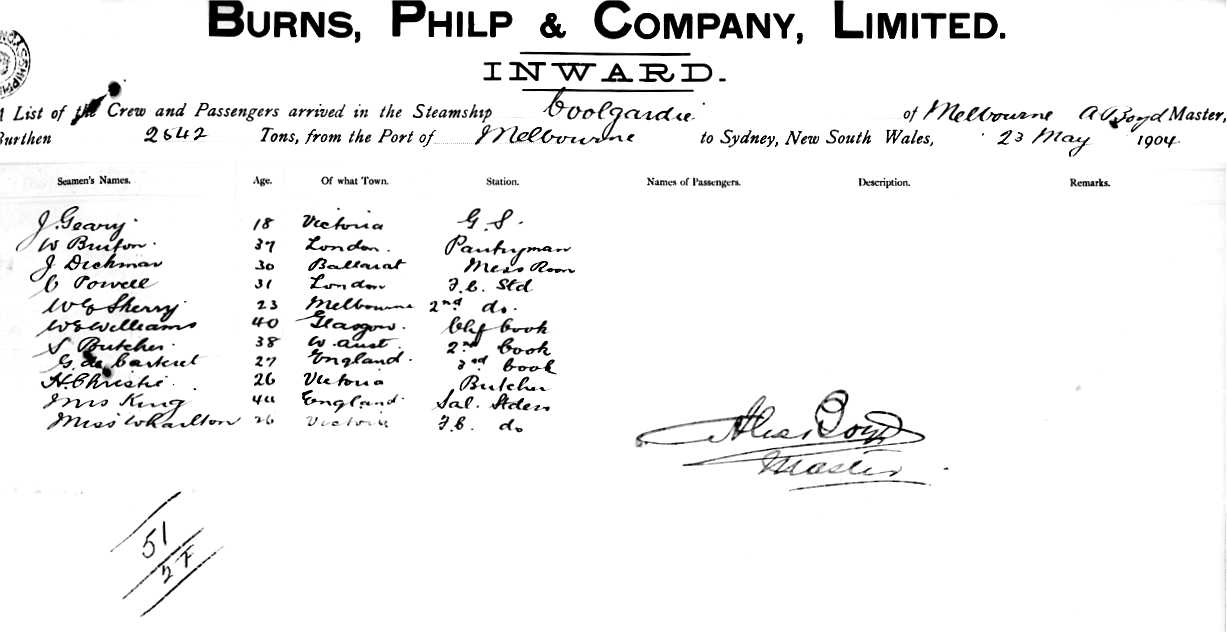 BURNS, PHILP & COMPANY, LIMITED.
INWARD.
A List of the Crew and Passengers arrived in the Steamship Coolgardie of Melbourne A Boyd Master,
Burthen 2542 Tons, from the Port of Melbourne to Sydney, New South Wales, 23 May 1904
Seamen's Names. Age. Of what Town. Station. Names of Passengers. Description. Remarks.
J. Geary 18 Victoria G. S.
W Burton 37 London. Pantryman
J Dickman 30 Ballarat Mess Room
C Powell 31 London F.C. Std
W G Sherry 23 Melbourne 2nd do.
W G Williams 40 Glasgow. Chf Cook
S Butcher. 38 W. Aust. 2nd Cook
G. de Carteret 27 England. 3rd Cook
H. Christie. 26 Victoria Butcher
Mrs King 44 England. Sal. Stdess
Miss Wharlton 26 Victoria F.C. do
Alex Boyd
Master.
51
27